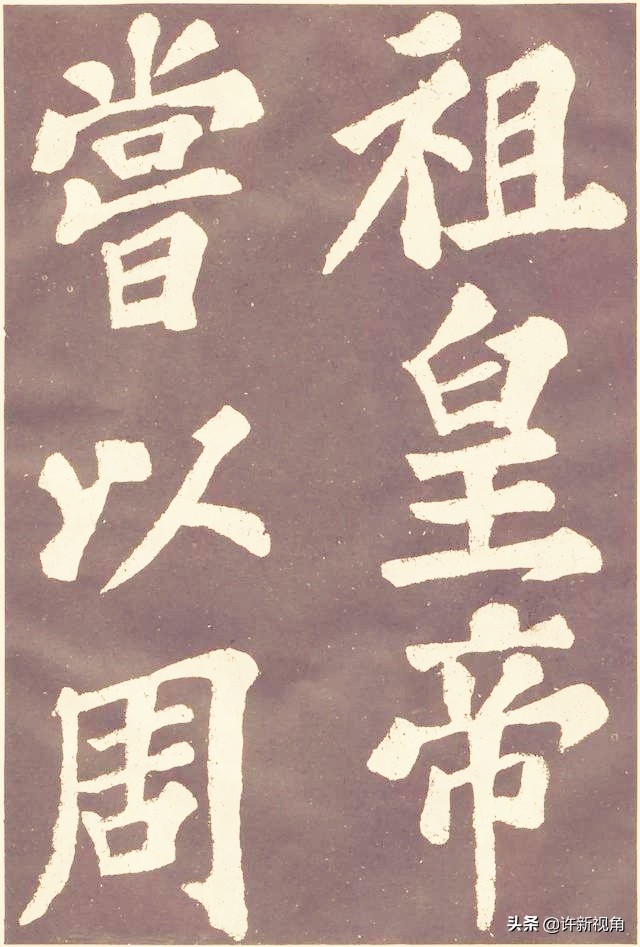 祖皇帝
嘗以周
头条 @许新视角